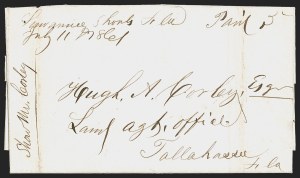 Suwannee Shoals Fla Paid 5
July 11 1861
Hugh A. Corley, Esqr
Land agt. office
Tallahassee
Fla
Thos Mc. Corley